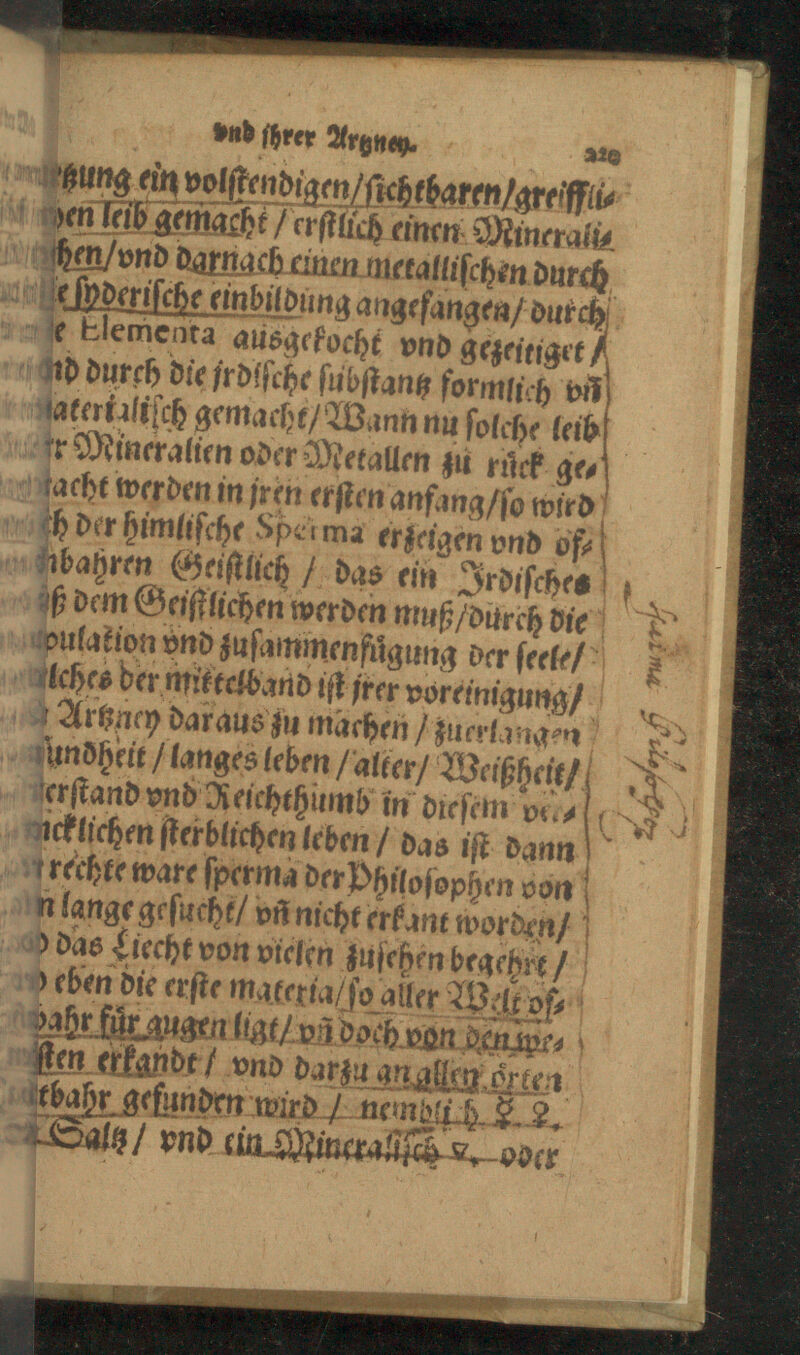 vnd jhrer Artzney. 329
ein volſtendigen/ſichtbaren/greiffli⸗
leib gemacht / erſtlich einen Minerali⸗
vnd darnach einen metalliſchen durch
ſyderiſche einbildung angefangen/durch
Elementa ausgekocht vnd gezeitiget /
durch die jrdiſche ſubſtantz formlich vñ
gemacht/Wann nu ſolche leib
Mineralien oder Metallen zu rück ge⸗
werden in jren erſten anfang/ſo wird
der himliſche Sperma erzeigen vnd of⸗
Geiſtlich / das ein Jrdiſches
dem Geiſtlichen werden muß/durch die
vnd zuſammenfügung der ſeele/
der mittelband iſt jrer voreinigung/
Artzney daraus zu machen / zuerlangen
langes leben / alter/ Weißheit/
vnd Reichthumb in dieſem
ſterblichen leben / das iſt dann
rechte ware ſperma der Philoſophen von
lange geſucht/ vñ nicht erkant worden/
das Liecht von vielen zuſehen begehrt /
eben die erſte materia/ſo aller Welt of⸗
für augen ligt/vñ doch von den we⸗
erkandt / vnd darzu an allen örten
gefunden wird / nemblich ☿ 🜍.
Saltz / vnd ein Mineraliſch ☿. oder